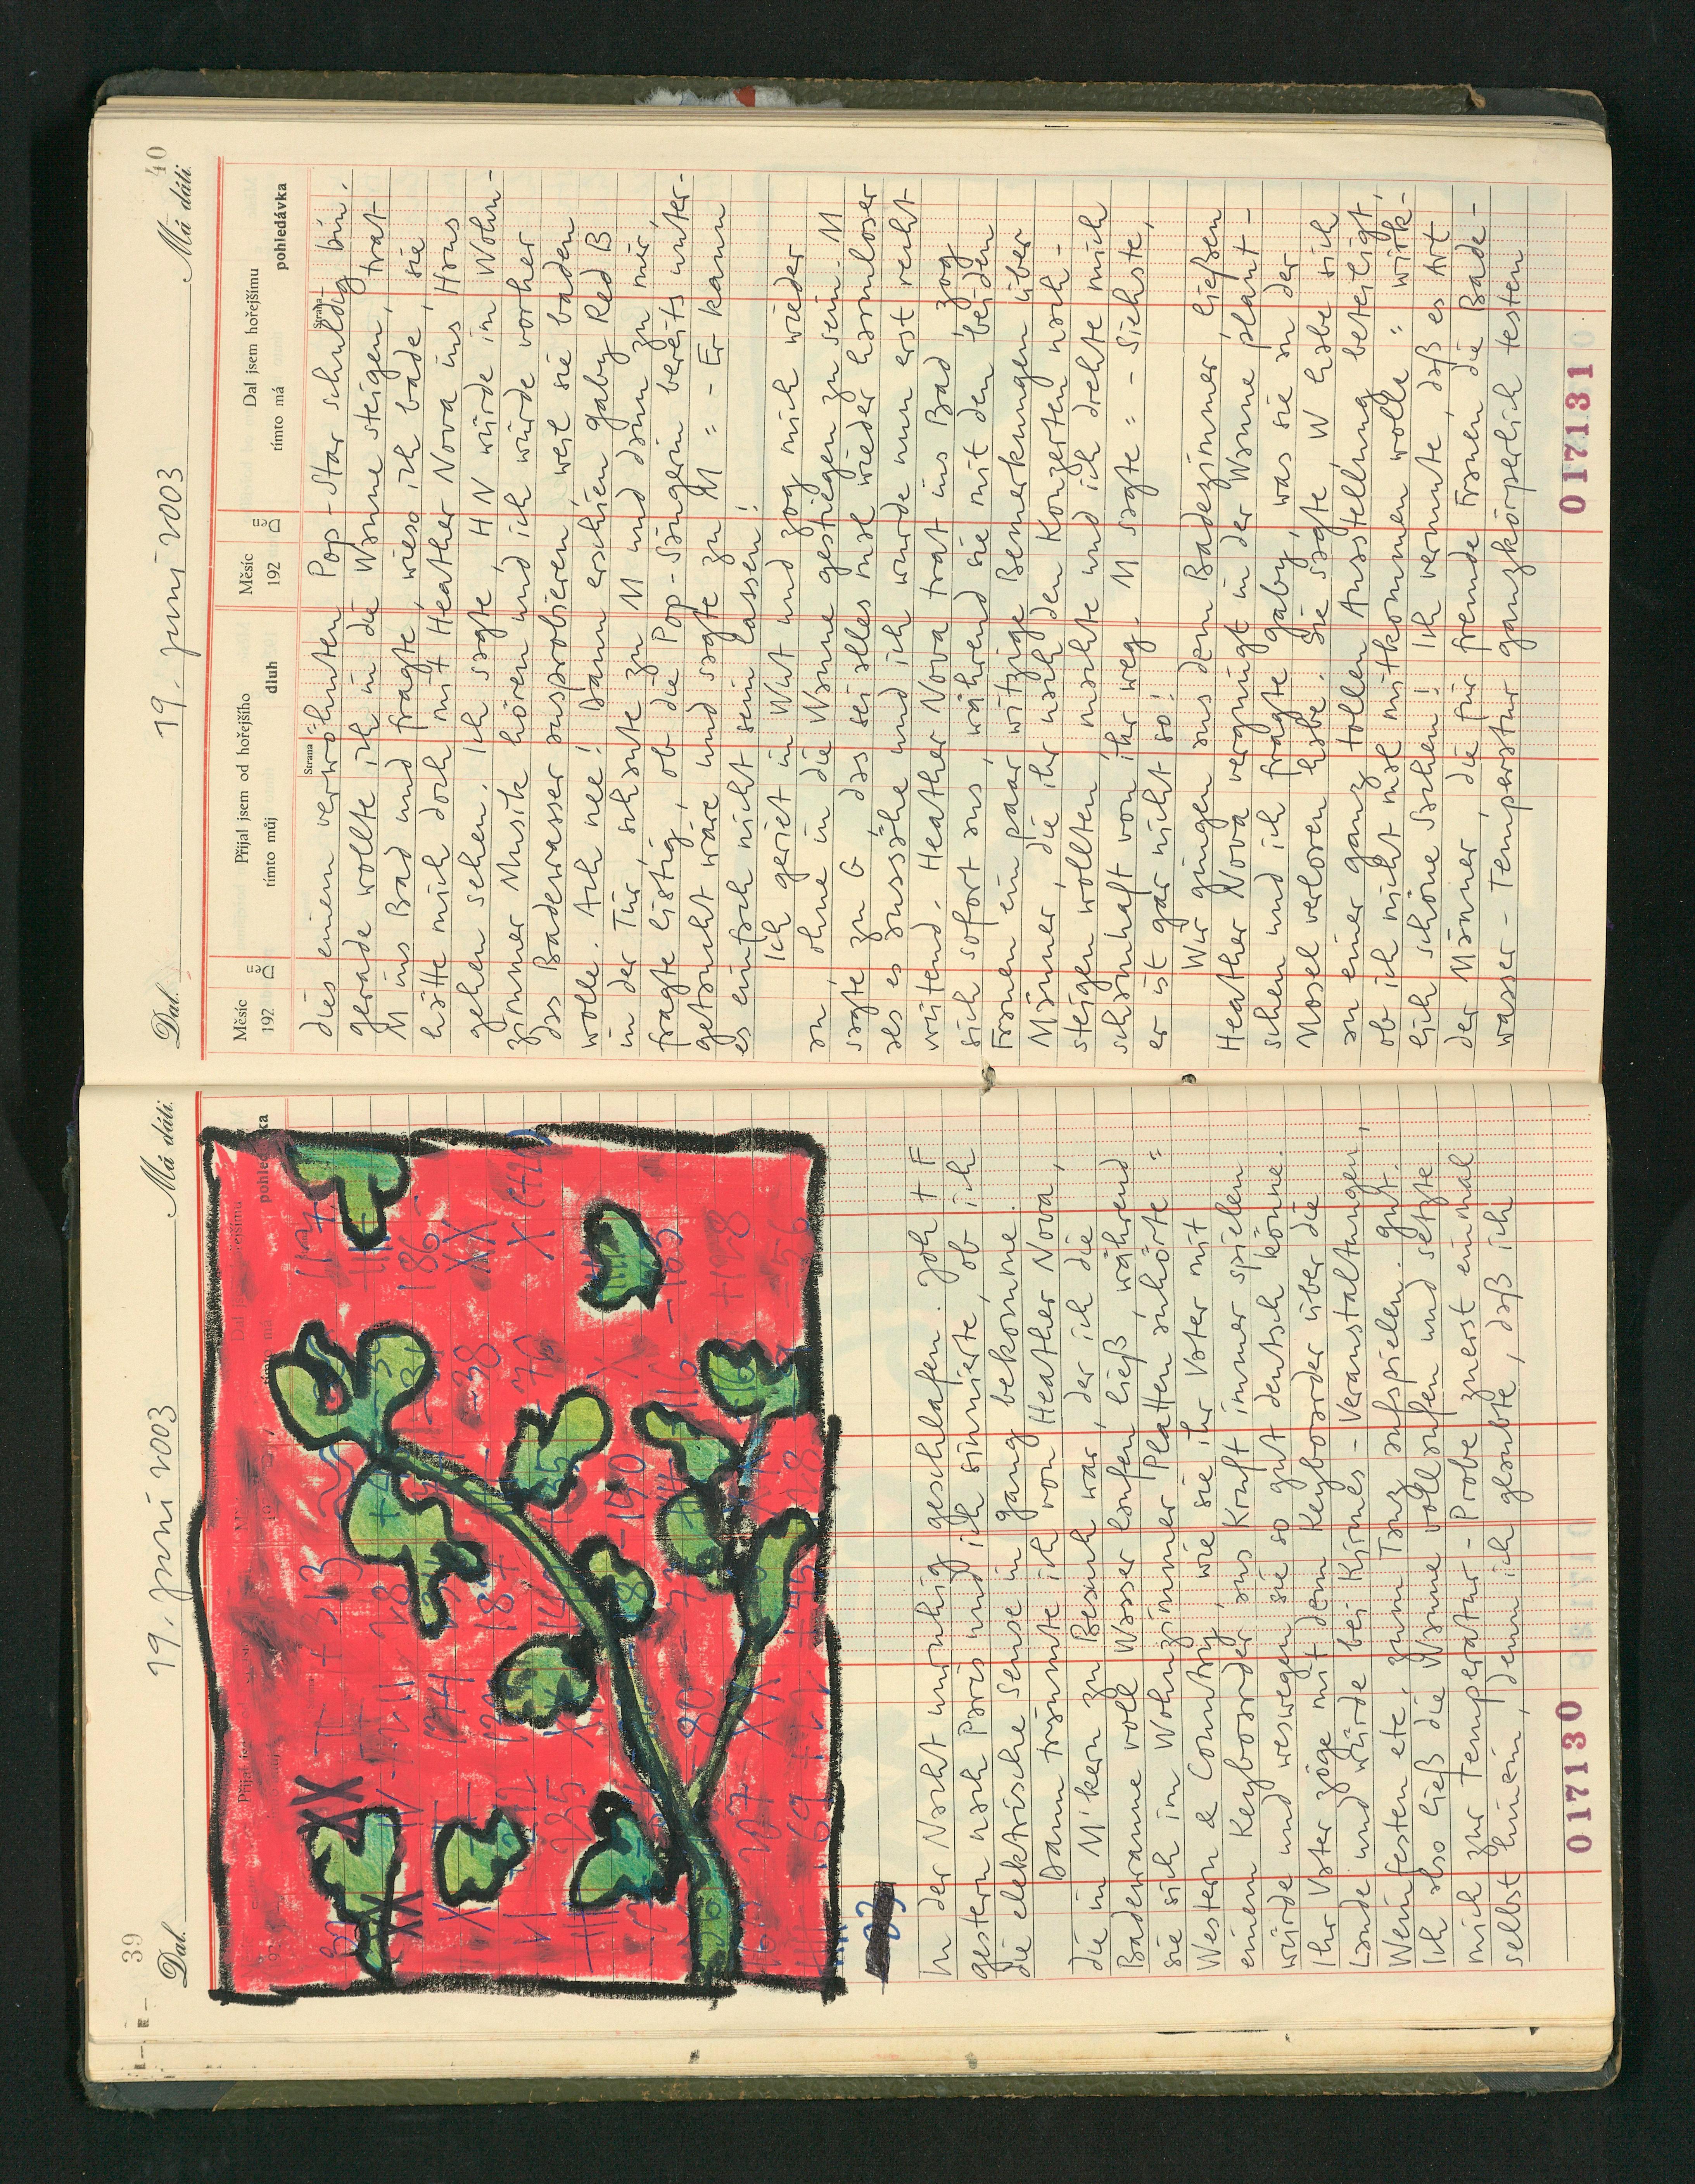 39
19. Juni 2003
Dal.
Má dáti.
pohledávka
In der Nacht unruhig geschlafen. Joh + F
gestern nach Paris und ich sinnierte, ob ich
die elektrische Sense in gang bekomme.
Dann träumte ich von Heather Nova,
die im M'kern zu Besuch war, der ich die
Badewanne voll Wasser laufen ließ, während
sie sich im Wohnzimmer Platten anhörte =
Western & Country, wie sie ihr Vater mit
einem Keyboarder aus Kruft immer spielen
würde und weswegen sie so gut deutsch könne.
Ihr Vater zöge mit dem Keyboarder über die
Lande und würde bei Kirmes-Veranstaltungen,
Weinfesten etc. zum Tanz aufspielen. Gut.
Ich also ließ die Wanne vollaufen und setzte
mich zur Temperatur-Probe zuerst einmal
selbst hinein, denn ich glaubte, daß ich
017130
40
19. Juni 2003
Dal.
Má dáti.
Měsíc
192
Přijal jsem od hořejšího
tímto můj
dluh
Měsíc
192
Dal jsem hořejšímu
tímto má
pohledávka
Strana
Strana
dies einem verwöhnten Pop-Star schuldig bin.
gerade wollte ich in die Wanne steigen, trat
M ins Bad und fragte, wieso ich bade, sie
hätte mich doch mit Heather Nova ins Haus
gehen sehen. Ich sagte, HN würde im Wohn-
zimmer Musik hören und ich würde vorher
das Badewasser ausprobieren, weil sie baden
wolle. Ach nee! Dann erschien Gaby Red B
in der Tür, schaute zu M und dann zu mir,
fragte listig, ob die Pop-Sängerin bereits unter-
getaucht wäre und sagte zu M = - Er kann
es einfach nicht sein lassen!
Ich geriet in Wut und zog mich wieder
an, ohne in die Wanne gestiegen zu sein. M
sagte zu G, das sei alles mal wieder harmloser
als es aussähe und ich wurde nun erst recht
wütend. Heather Nova trat ins Bad, zog
sich sofort aus, während sie mit den beiden
Frauen ein paar witzige Bemerkungen über
Männer, die ihr nach den Konzerten nach-
steigen wollten, machte und ich drehte mich
schamhaft von ihr weg. M sagte = - Siehste,
er ist gar nicht so!
Wir gingen aus dem Badezimmer, ließen
Heather Nova vergnügt in der Wanne plant-
schen und ich fragte Gaby, was sie an der
Mosel verloren habe. Sie sagte, W habe sich
an einer ganz tollen Ausstellung beteiligt,
ob ich nicht mal mitkommen wolle = wirk-
lich schöne Sachen! Ich vermute, daß es Art
der Männer, die für fremde Frauen die Bade-
wasser-Temperatur ganzkörperlich testen
017131